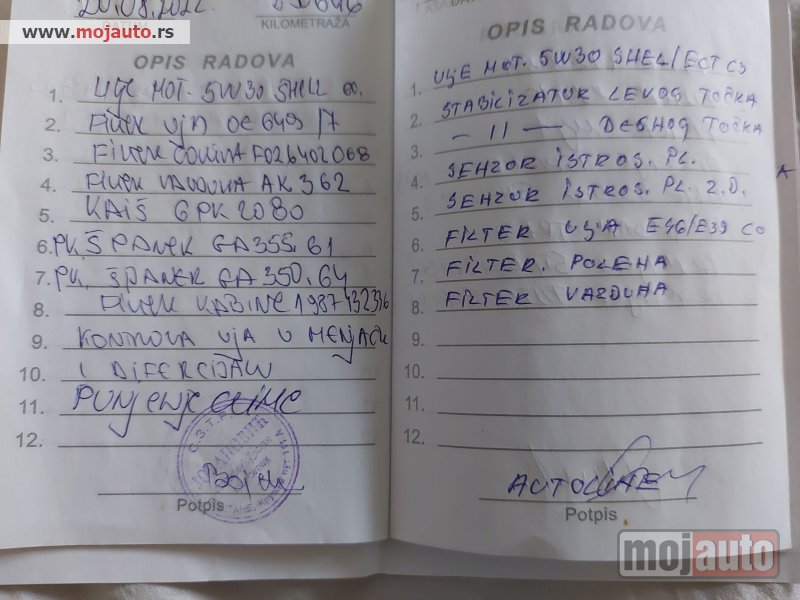 www.mojauto.rs
20.08.2022
KILOMETRAŽA
OPIS RADOVA
1. ULJE MOT. 5W30 SHELL
2. FILTER ULJA OC 649/7
3. FILTER GORIVA F026402068
4. FILTER VAZDUHA AK 362
5. KAIŠ 6PK2080
6. PK. ŠPANER GA355.61
7. PK. ŠPANER GA350.64
8. FILTER KABINE 1987432336
9. KONTROLA ULJA U MENJAČU
10. I DIFERECIJALU
11. PUNJENJE KLIME
12.
Potpis
OPIS RADOVA
1. ULJE MOT. 5W30 SHELL/ECT C3
2. STABILIZATOR LEVOG TOČKA
3. - 11 - DESNOG TOČKA
4. SENZOR ISTROS. PL.
5. SENZOR ISTROS. PL. Z.D.
6. FILTER ULJA E46/E39 CO
7. FILTER. POLENA
8. FILTER VAZDUHA
9.
10.
11.
12.
Potpis
mojauto